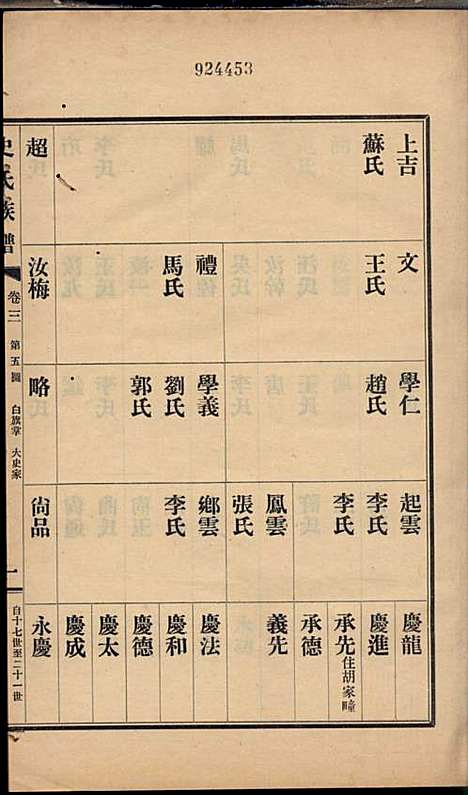 924453
上吉
蘇氏
超
文
王氏
禮
馬氏
汝梅
學仁
趙氏
學義
劉氏
郭氏
略
起雲
李氏
李氏
鳳雲
張氏
鄉雲
李氏
尙品
慶龍
慶進
承先住胡家疃
承德
義先
慶法
慶和
慶德
慶太
慶成
永慶
史氏族譜
卷三 第五圖 白旗掌 大史家
一
自十七世至二十一世